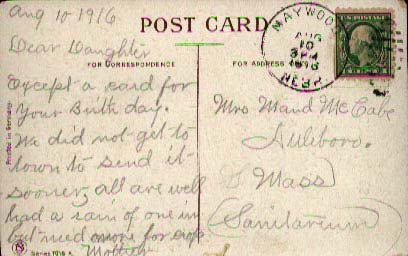 Aug 10 1916
POST CARD
Dear Daughter
FOR CORRESPONDENCE
Except a card for
Your Birth day.
We did not get to
town to send it
sooner, all are well
had a rain of one in
but need more for crop
Mother
Printed in Germany
Series 1016
FOR ADDRESS
MAYWOOD
AUG
10
3PM
1916
NEBR.
U.S. POSTAGE
Mrs Maud McCabe
Mass
(Sanitarium)